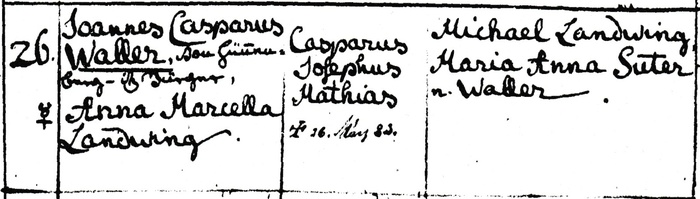 26.
Joannes Casparus
Waller, von
burg
☿ Anna Marcella
Landwing
Casparus
Josephus
Mathias
† 26. May 83.
Michael Landwing
Maria Anna Suter
n. Waller